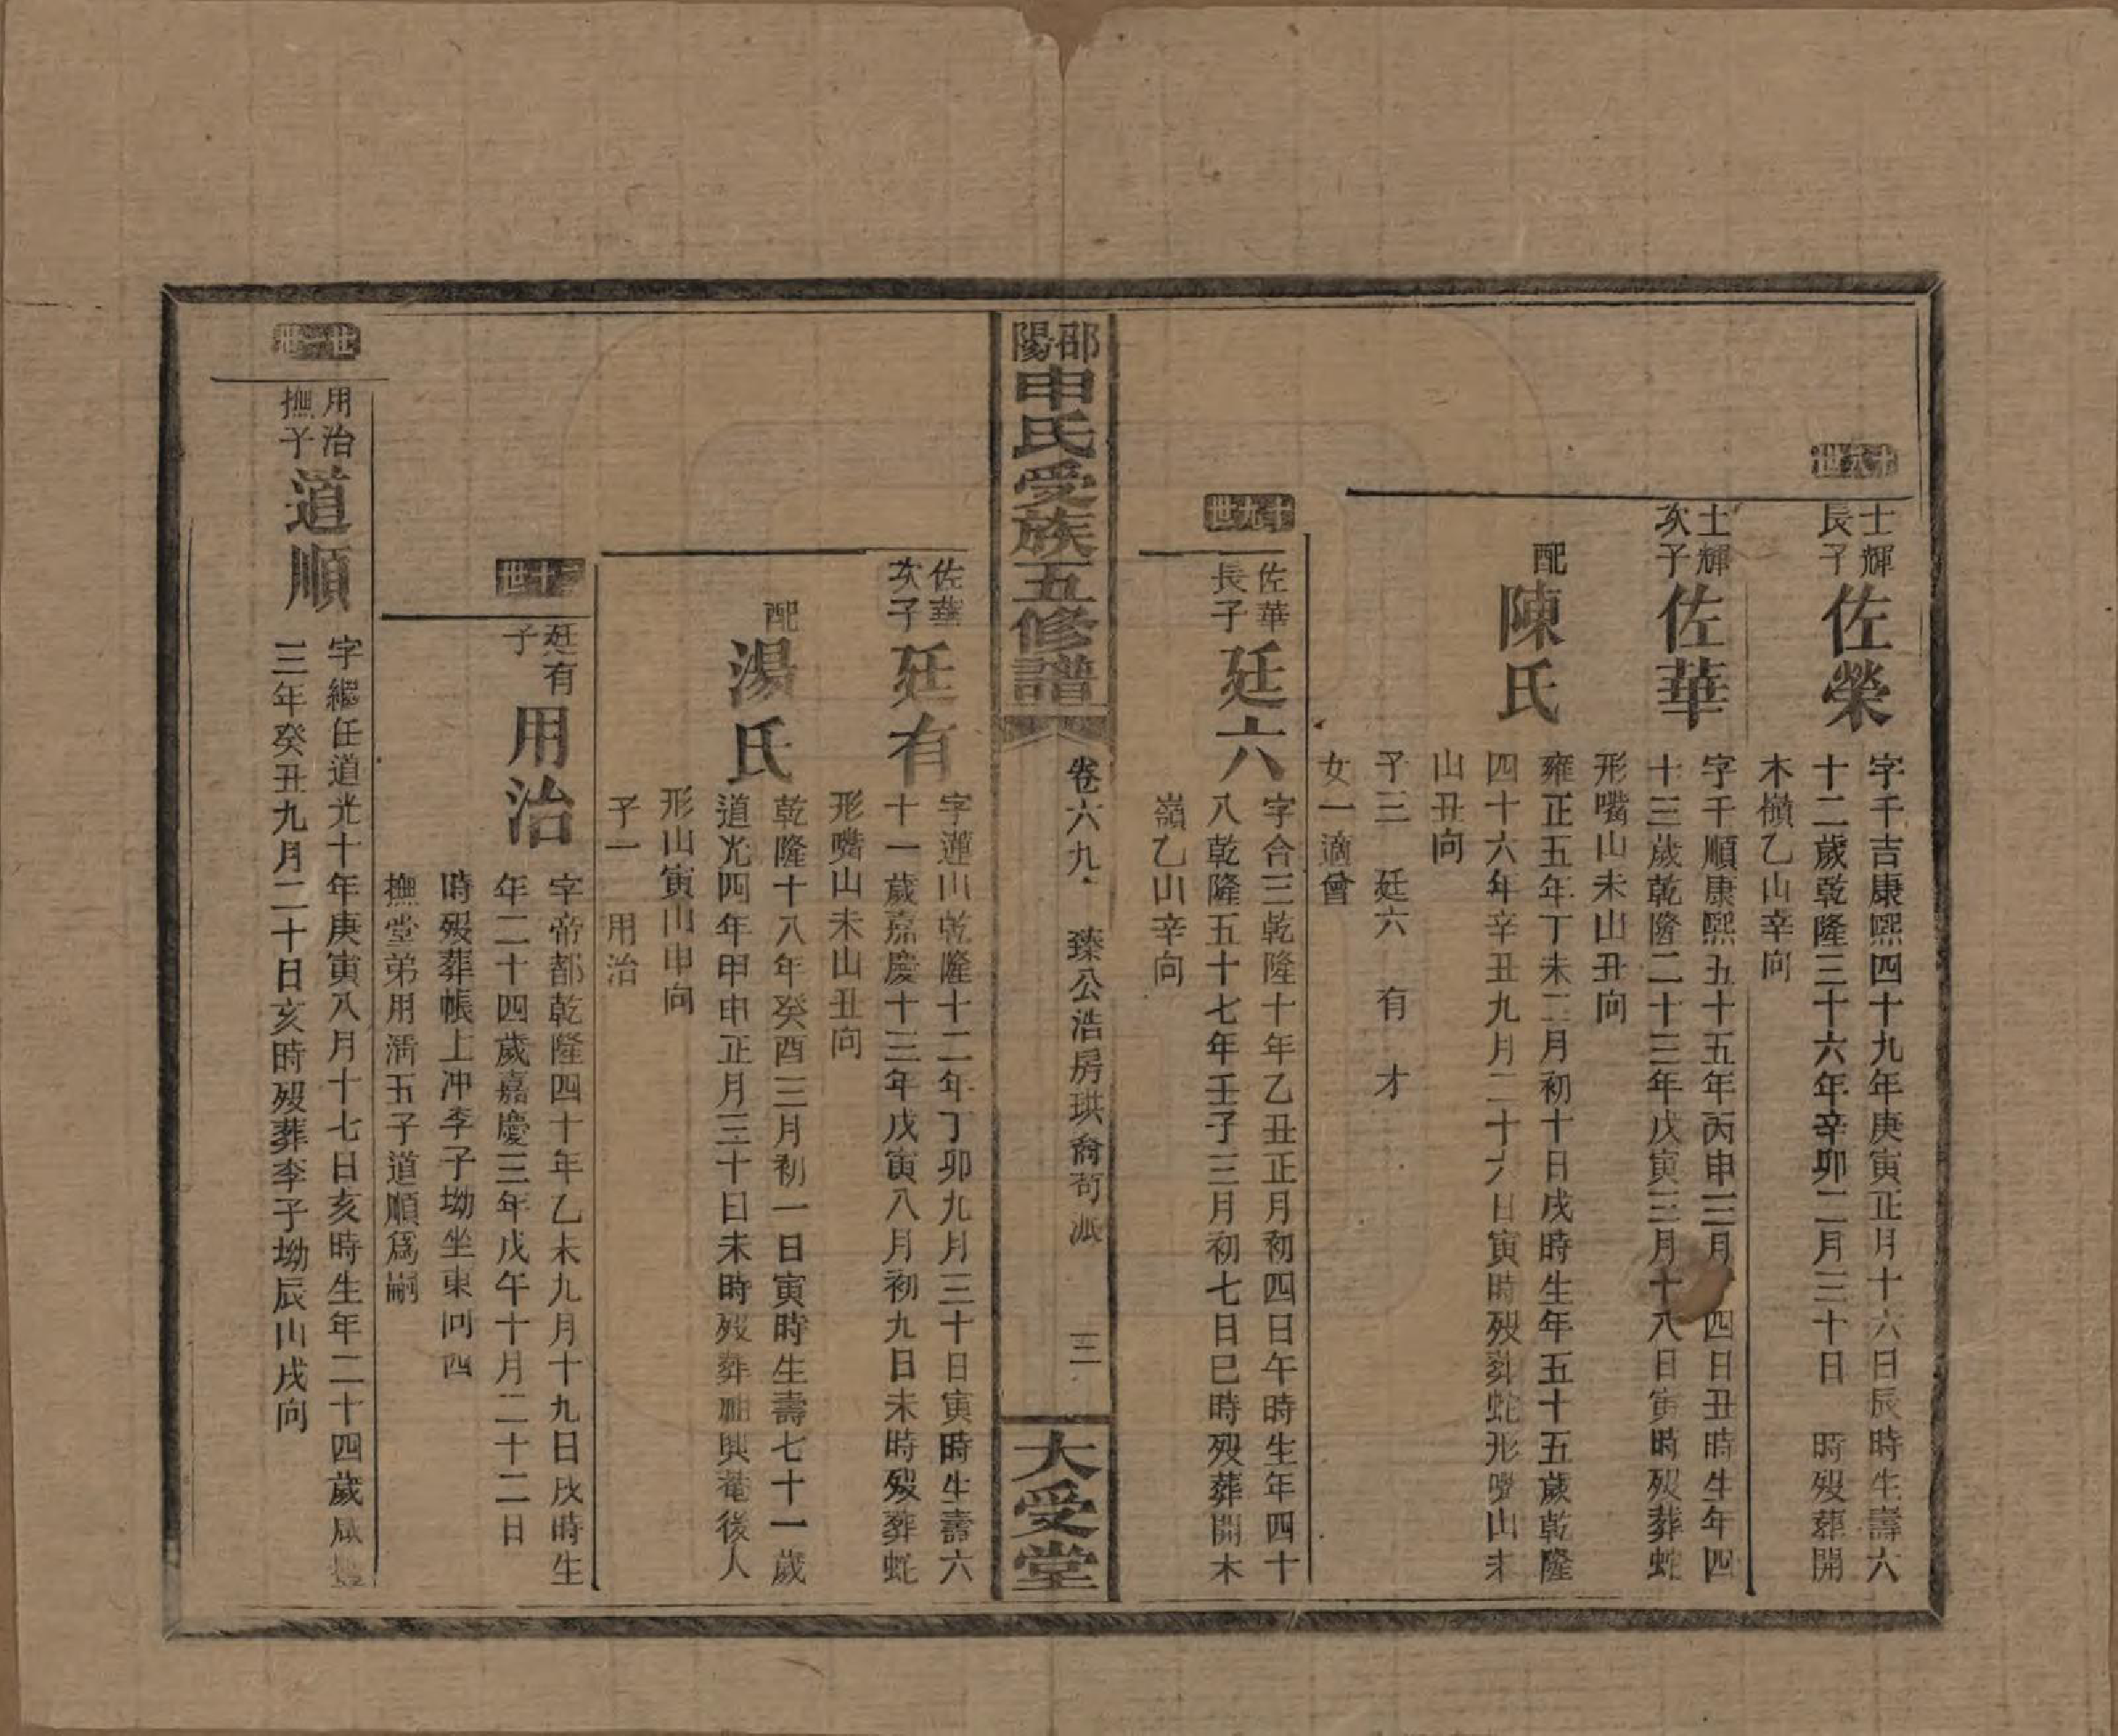 十八世
士輝
長子
佐榮
字千吉康熙四十九年庚寅正月十六日辰時生壽六
十二歲乾隆三十六年辛卯二月三十日　時歿葬開
木嶺乙山辛向
士輝
次子
佐華
字千順康熙五十五年丙申三月　四日丑時生年四
十三歲乾隆二十三年戊寅三月十八日寅時歿葬蛇
形嘴山未山丑向
配
陳氏
雍正五年丁未二月初十日戌時生年五十五歲乾隆
四十六年辛丑九月二十六日寅時歿葬蛇形嘴山未
山丑向
子三　廷六　有　才
女一適曾
十九世
佐華
長子
廷六
字合三乾隆十年乙丑正月初四日午時生年四十
八乾隆五十七年壬子三月初七日巳時歿葬開木
嶺乙山辛向
邵陽申氏受族五修譜
卷六九　臻公浩房珙裔苛派　三
大受堂
佐華
次子
廷有
字蓮山乾隆十二年丁卯九月三十日寅時生壽六
十一歲嘉慶十三年戊寅八月初九日未時歿葬蛇
形嘴山未山丑向
配
湯氏
乾隆十八年癸酉三月初一日寅時生壽七十一歲
道光四年甲申正月三十日未時歿葬興菴後人
形山寅山申向
子一　用治
二十世
廷有
子
用治
字帝都乾隆四十年乙未九月十九日戌時生
年二十四歲嘉慶三年戊午十月二十二日
時歿葬帳上冲李子坳坐東向西
撫堂弟用清五子道順爲嗣
廿一世
用治
撫子
道順
字繼任道光十年庚寅八月十七日亥時生年二十四歲咸豐
三年癸丑九月二十日亥時歿葬李子坳辰山戌向